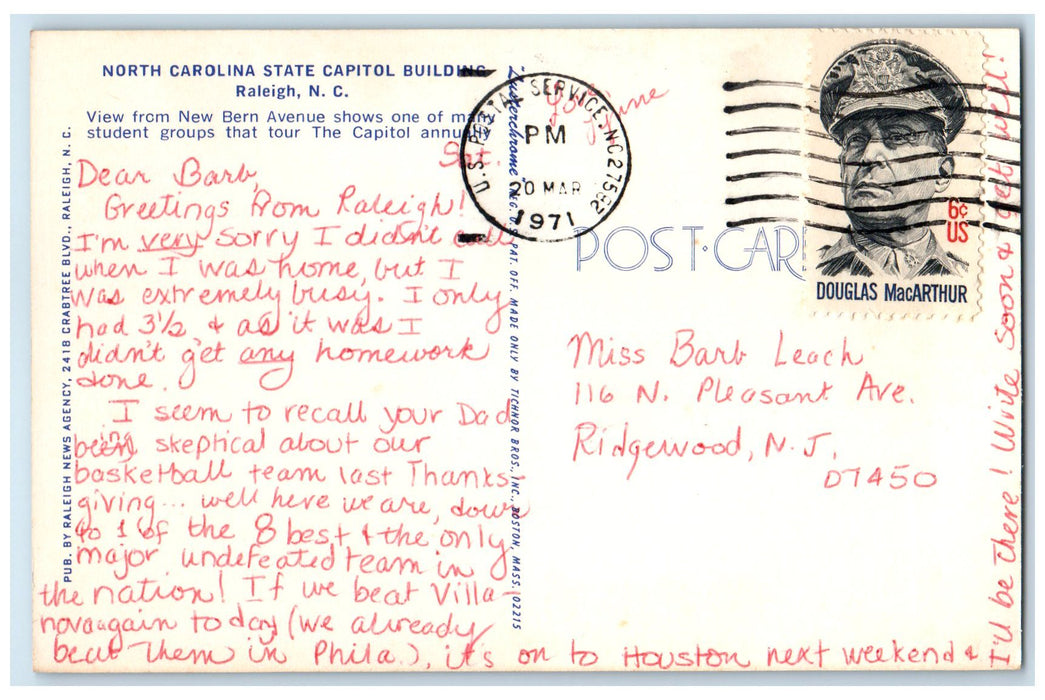 NORTH CAROLINA STATE CAPITOL BUILDING
Raleigh, N. C.
View from New Bern Avenue shows one of many
student groups that tour The Capitol annually
PUB. BY RALEIGH NEWS AGENCY, 2418 CRABTREE BLVD., RALEIGH, N. C.
Lusterchrome REG. U. S. PAT. OFF. MADE ONLY BY TICHNOR BROS., INC., BOSTON, MASS. 02215
Sat.
Dear Barb,
Greetings from Raleigh!
I'm very sorry I didn't call
when I was home, but I
was extremely busy. I only
had 3½ & as it was I
didn't get any homework
done.
I seem to recall your Dad
being skeptical about our
basketball team last Thanks-
giving... well here we are, down
to 1 of the 8 best & the only
major undefeated team in
the nation! If we beat Villa-
nova again today (we already
beat them in Phila.), it's on to Houston next weekend &
I'll be there! Write soon & get well!
U.S. POSTAL SERVICE, NC 27582
PM
20 MAR
1971
POST CARD
6¢
US
DOUGLAS MacARTHUR
Miss Barb Leach
116 N. Pleasant Ave.
Ridgewood, N.J.
07450